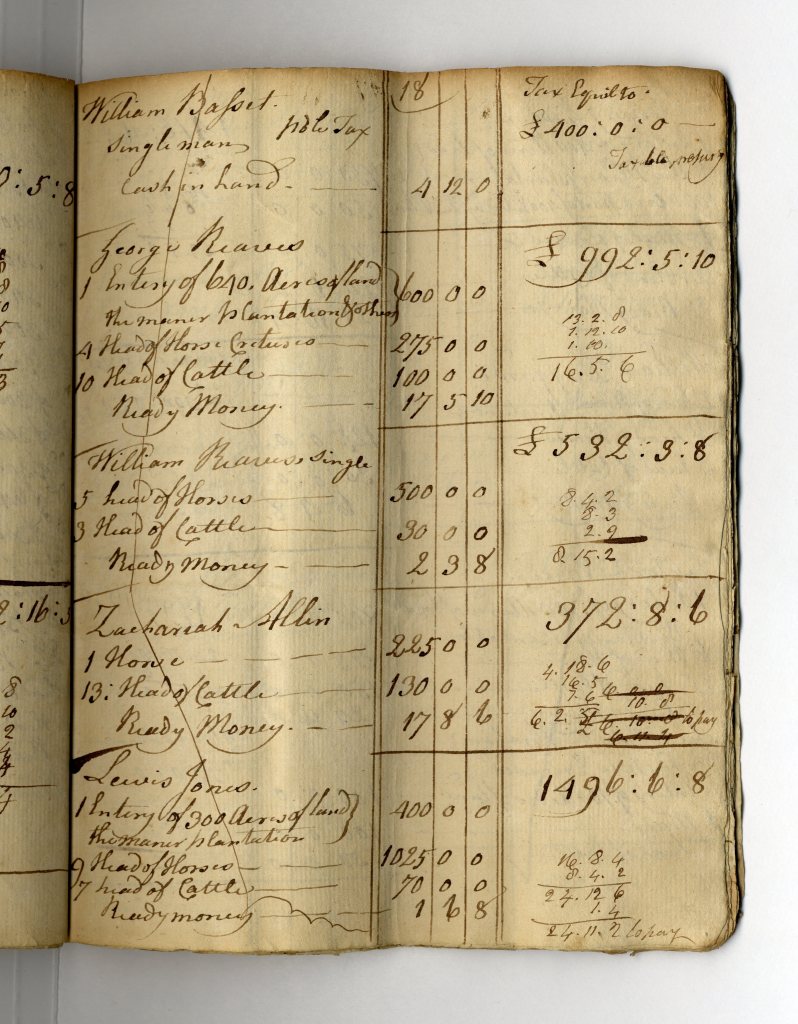 0:5:8
2:16:5
18
William Basset. Tax Equil to.
pole Tax £400:0:0
single man
Cash in hand. 4 12 0
George Reaves £ 992:5:10
1 Entery of 640. Acres of land
the maner plantation & others 600 0 0 13.2.8
1.12.10
4 Head of Horse Cretures 275 0 0 1.10.
10 Head of Cattle 100 0 0 16.5.6
Ready Money. 17 5 10
William Reaves single £532:3:8
5 head of Horses 500 0 0 8.4.2
8.3
3 Head of Cattle 30 0 0 2.9
Ready Money 2 3 8 8.15.2
Zachariah Allin 372:8:6
1 Horse 225 0 0
4.18.6
16.5
13: Head of Cattle 130 0 0 7.6
Ready Money. 17 8 6 6.2. to pay
Lewis Jones. 1496:6:8
1 Entery of 300 Acres of land 400 0 0
the maner plantation
9 Head of Horses 1025 0 0 16.8.4
8.4.2
7 head of Cattle 70 0 0 24.12.6
Ready money 1 6 8 1.4
24.11.2 to pay